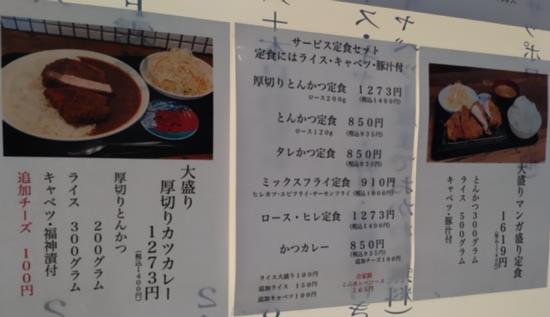 大盛り
厚切りカツカレー
1273円
(税込1400円)
厚切りとんかつ
200グラム
ライス 300グラム
キャベツ・福神漬付
追加チーズ 100円
サービス定食セット
定食にはライス・キャベツ・豚汁付
厚切りとんかつ定食 1273円
ロース200g (税込1400円)
とんかつ定食 850円
ロース120g (税込935円)
タレかつ定食 850円
(税込935円)
ミックスフライ定食 910円
ヒレカツ・エビフライ・サーモンフライ (税込1000円)
ロース・ヒレ定食 1273円
(税込1400円)
かつカレー 850円
(税込935円)
追加チーズ100円
ライス大盛り100円
追加ライス 150円
追加キャベツ100円
大盛りマンガ盛り定食
1619円
とんかつ300グラム
ライス500グラム
キャベツ・豚汁付